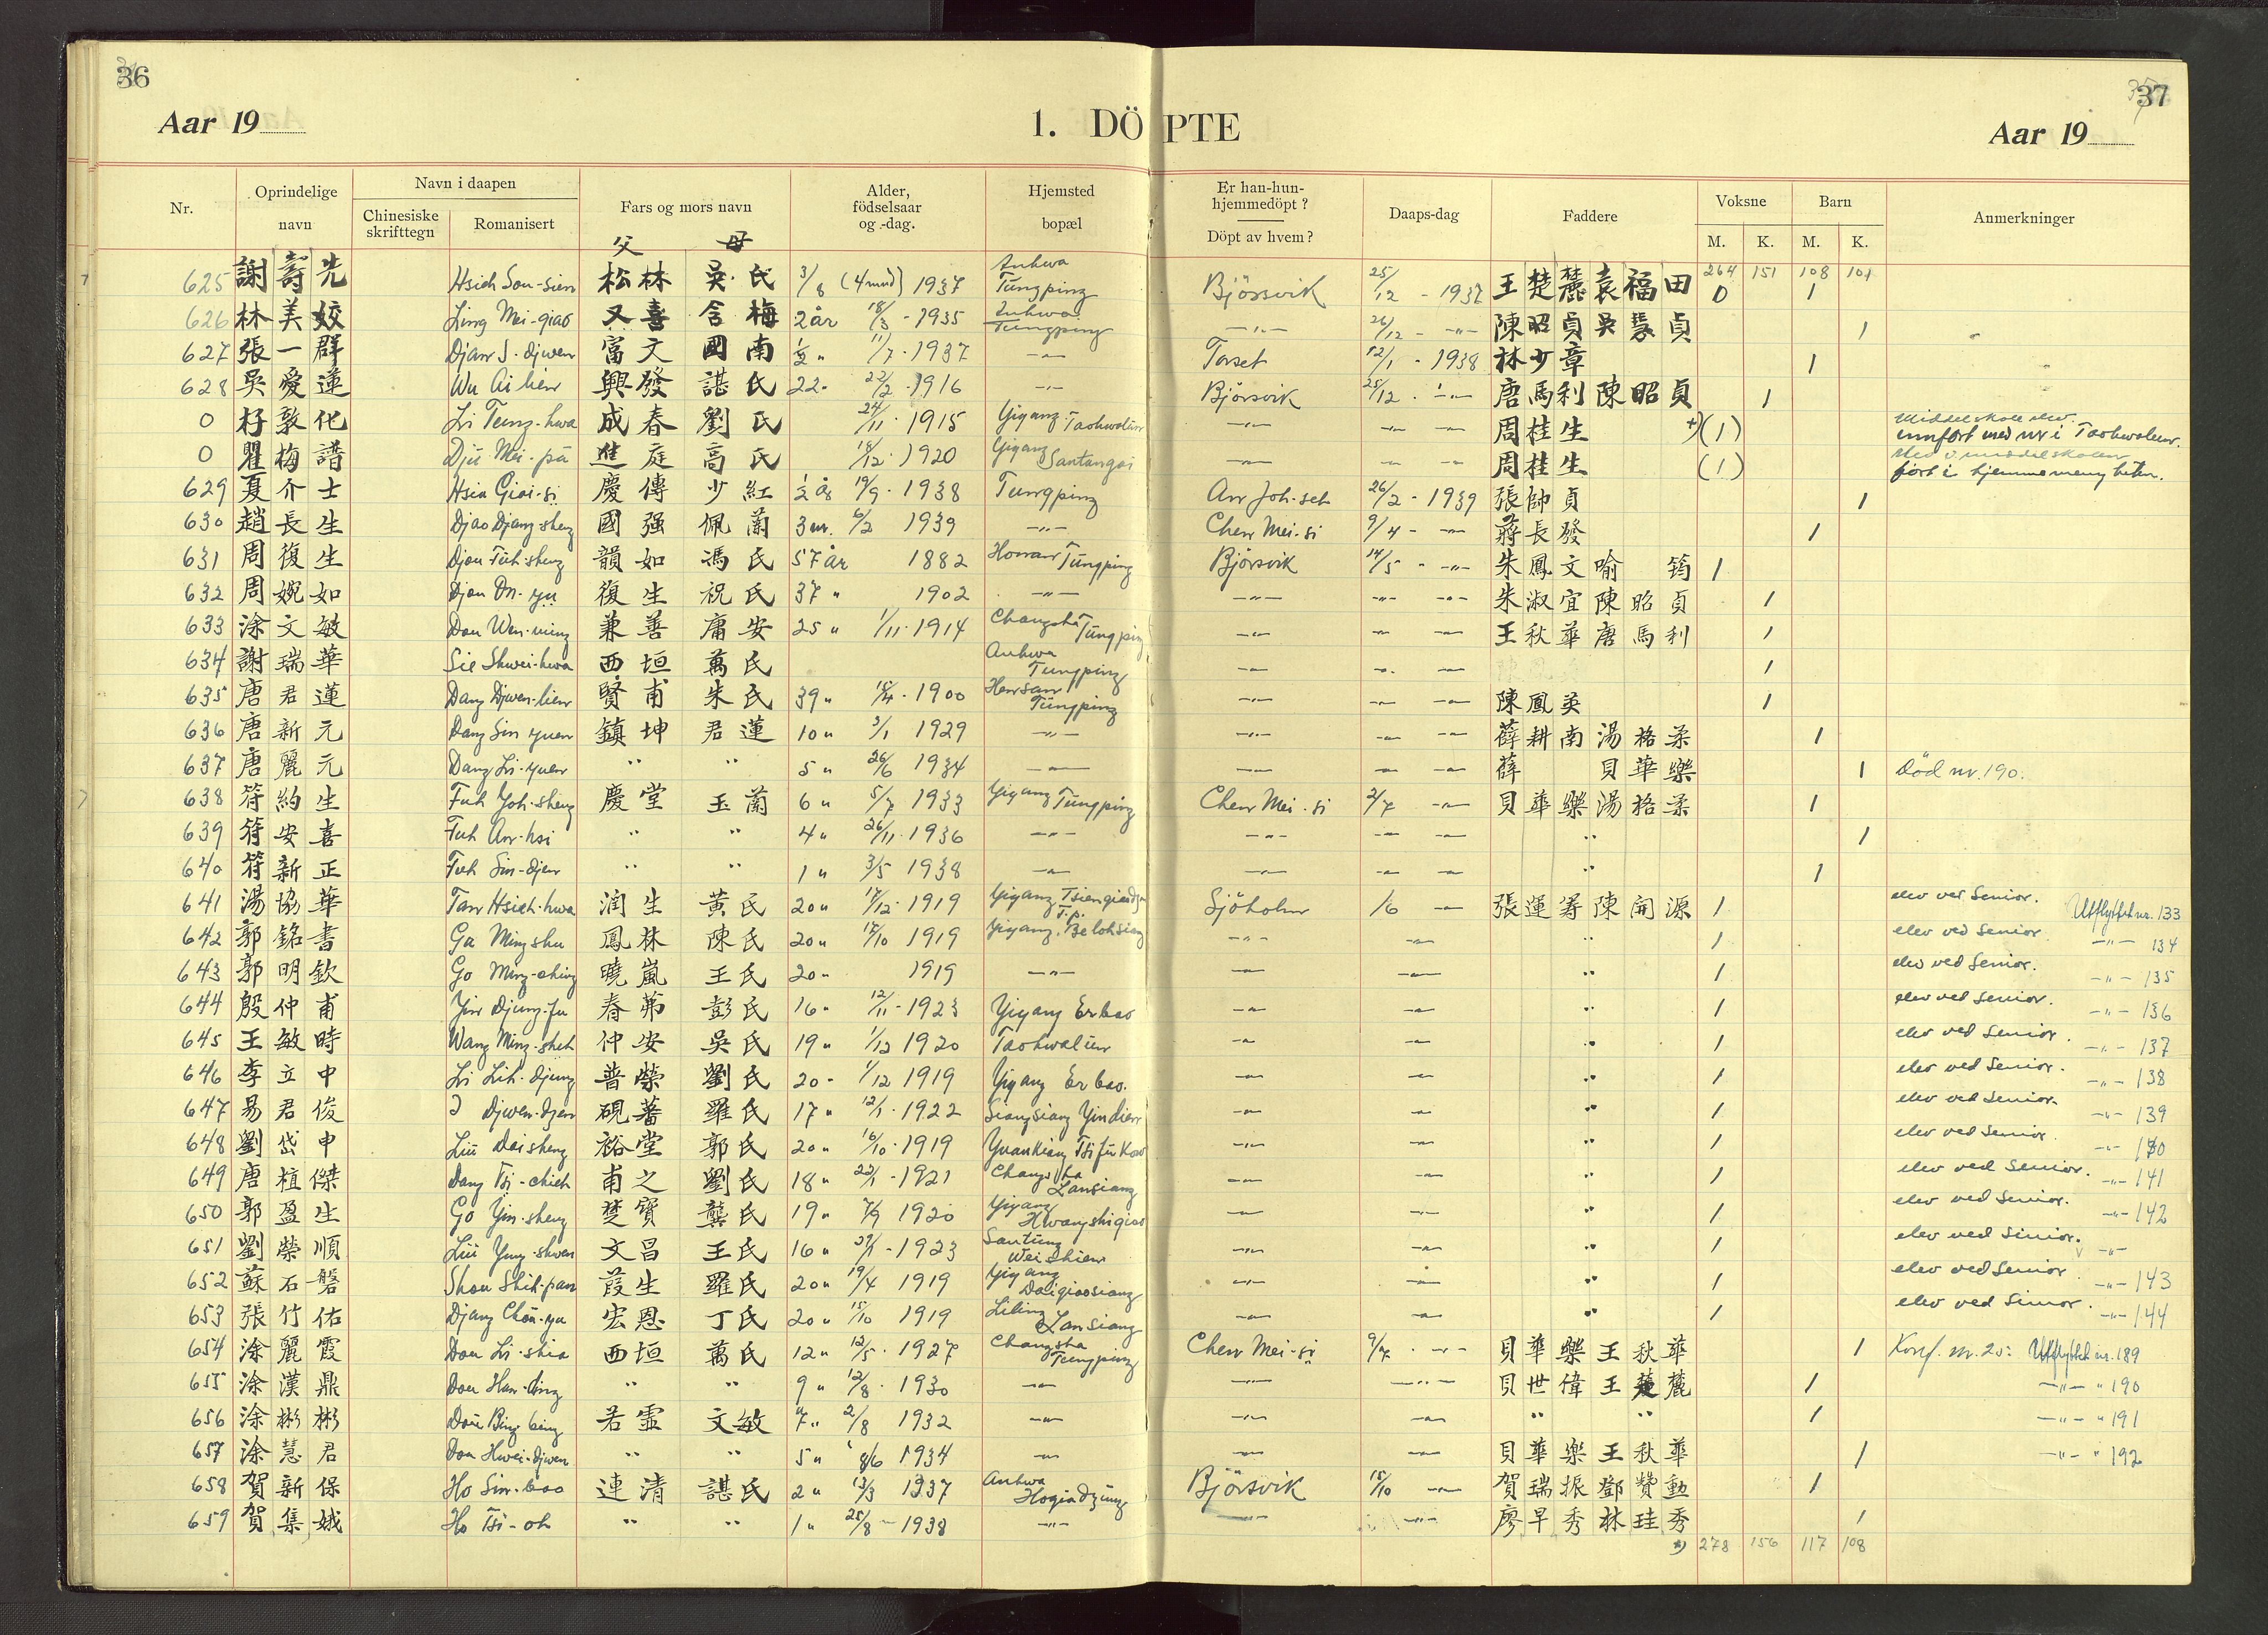 36
37
Aar 19
1. DÖPTE
Aar 19
Nr. Oprindelige navn Navn i daapen Chinesiske skrifttegn Romanisert Fars og mors navn Alder, födselsaar og -dag. Hjemsted bopæl Er han-hun-hjemmedöpt? Döpt av hvem? Daaps-dag Faddere Voksne M. K. Barn M. K. Anmerkninger
父 母
264 151 108 101
625 謝壽先 Hsieh Sou-sien 松林 吳氏 3/8 (4 mnd) 1937 Anhwa Tungping Björsvik 25/12 - 1937 王楚麓 袁福田 0 1
626 林美姣 Ling Mei-giao 又喜 含梅 2 år 18/3 - 1935 Anhwa Tungping -"- 26/12 - -"- 陳昭貞 吳 貞 1
627 張一群 富文 國南 1/2 " 11/7 - 1937 -"- Torset 12/1 - 1938 林少章 1
628 吳愛蓮 Wu Ai-lien 興發 諶氏 22 - 22/2 - 1916 -"- Björsvik 25/12 - -"- 唐馬利 陳昭貞 1
0 敦化 Li Tung-hwa 成春 劉氏 24/11 - 1915 Yiyang Taohwalun -"- -"- -"- 周桂生 +) (1) Middelskole elev. innført med nr i Taohwalun.
0 瞿梅譜 Djü Mei-pu 進庭 高氏 18/12 - 1920 Yiyang Santangai -"- -"- -"- 周桂生 (1) ført i hjemmemenigheten.
629 夏介士 Hsia Giai-si 慶傳 少紅 1/2 år 19/9 - 1938 Tungping An Joh-seh 26/2 - 1939 張帥貞 1
630 趙長生 Djao Djang-sheng 國强 佩蘭 3 m. 6/2 1939 -"- Chen Mei-si 9/4 - -"- 蔣長發 1
631 周復生 Djou Fuh-sheng 韻如 馮氏 57 år 1882 Honan Tungping Björsvik 14/5 - -"- 朱鳳文 喻筠 1
632 周婉如 Djou On-yu 復生 祝氏 37 " 1902 -"- -"- -"- -"- 朱淑宜 陳昭貞 1
633 涂文敏 Dou Wen-ming 兼善 庸安 25 " 1/11 - 1914 Changsha Tungping -"- -"- -"- 王秋華 唐馬利 1
634 謝瑞華 Sie Shwei-hwa 西垣 萬氏 Anhwa Tungping -"- -"- -"- 1
635 唐君蓮 Dang Djwen-lien 賢甫 朱氏 39 " 15/4 - 1900 Hensan Tungping -"- -"- -"- 陳鳳英 1
636 唐新元 Dang Sin-yuen 鎮坤 君蓮 10 " 3/1 1929 -"- -"- -"- -"- 薛耕南 湯格柔 1
637 唐麗元 Dang Li-yuen " " 5 " 26/6 1934 -"- -"- -"- -"- 薛 貝華樂 1 Död nr. 190.
638 符約生 Fuh Yoh-sheng 慶堂 玉蘭 6 " 5/7 1933 Yiyang Tungping Chen Mei-si 2/7 -"- 貝華樂 湯格柔 1
639 符安喜 Fuh An-hsi " " 4 " 26/11 - 1936 -"- -"- -"- -"- " 1
640 符新正 Fuh Sin-djen " " 1 " 3/5 1938 -"- -"- -"- -"- " 1
641 湯協華 Tan Hsieh-hwa 润生 黃氏 20 " 17/12 - 1919 Yiyang T.p. Sjöholm 1/6 -"- 張運籌 陳開源 1 elev ved Senior. Utflyttet nr. 133
642 郭銘書 Go Ming shu 鳳林 陳氏 20 " 15/10 1919 Yiyang. Belohsiang -"- -"- " 1 elev ved Senior. -"- 134
643 郭明欽 Go Ming-ching 曉嵐 王氏 20 - 1919 -"- -"- -"- " 1 elev ved Senior. -"- 135
644 殷仲甫 Yin Djung-fu 春茀 彭氏 16 - 12/11 - 1923 Yiyang Erbao -"- -"- 1 elev ved Senior. -"- 136
645 王敏時 Wang Ming-shih 仲安 吳氏 19 " 1/12 1920 Taohwalun -"- -"- " 1 elev ved Senior. -"- 137
646 李立中 Li Lih-djung 普榮 劉氏 20 - 1/12 1919 Yiyang Erbao. -"- -"- " 1 elev ved Senior. -"- 138
647 易君俊 I Djwen-dzen 硯蕃 羅氏 17 " 12/1 - 1922 Siangsiang Yindien -"- -"- " 1 elev ved Senior. -"- 139
648 劉岱申 Liu Dai sheng 裕堂 郭氏 20 " 16/10 - 1919 Yuankiang -"- -"- " 1 elev ved Senior. -"- 140
649 唐植傑 Dang Tsi-chieh 甫之 劉氏 18 " 22/1 - 1921 Changsha Lansiang -"- -"- " 1 elev ved Senior. -"- 141
650 郭盈生 Go Yin-sheng 楚寶 龔氏 19 " 7/9 1920 Yiyang Hwangshigiao -"- -"- " 1 elev ved Senior. -"- 142
651 劉榮順 Liu Yung-shwen 文昌 王氏 16 " 27/1 - 1923 Santung Wei Shien -"- -"- " 1 elev ved Senior. -"-
652 蘇石磐 Shou Shih-pan 葭生 羅氏 20 " 19/4 1919 Yiyang Daigiaosiang -"- -"- " 1 elev ved Senior. -"- 143
653 張竹佑 Djang Chou-yu 宏恩 丁氏 20 " 15/10 1919 Liling Lansiang -"- -"- " 1 elev ved Senior. -"- 144
654 涂麗霞 Dou Li-shia 西垣 萬氏 12 " 12/5 - 1927 Changsha Tungping Chen Mei-si 9/7 - -"- 貝華樂 王秋華 1 Konf. nr. 20: Utflyttet nr. 189
655 涂漢鼎 Dou Han-ding " " 9 " 12/8 - 1930 -"- -"- -"- 貝世偉 王楚麓 1 -"- " 190
656 涂彬彬 Dou Bing bing 若霊 文敏 7 " 2/8 1932 -"- -"- -"- " " 1 -"- " 191
657 涂慧君 Dou Hwei-djwen " " 5 " 8/6 1934 -"- -"- -"- 貝華樂 王秋華 1 -"- " 192
658 賀新保 Ho Sin-bao 連清 諶氏 2 " 13/3 1937 Anhwa Hogiadzung Björsvik 15/10 -"- 賀瑞振 鄧贊勳 1
659 賀集娥 Ho Tsi-oh " " 1 " 25/8 - 1938 -"- -"- -"- 廖早秀 林珪秀 1
*) 278 156 117 108